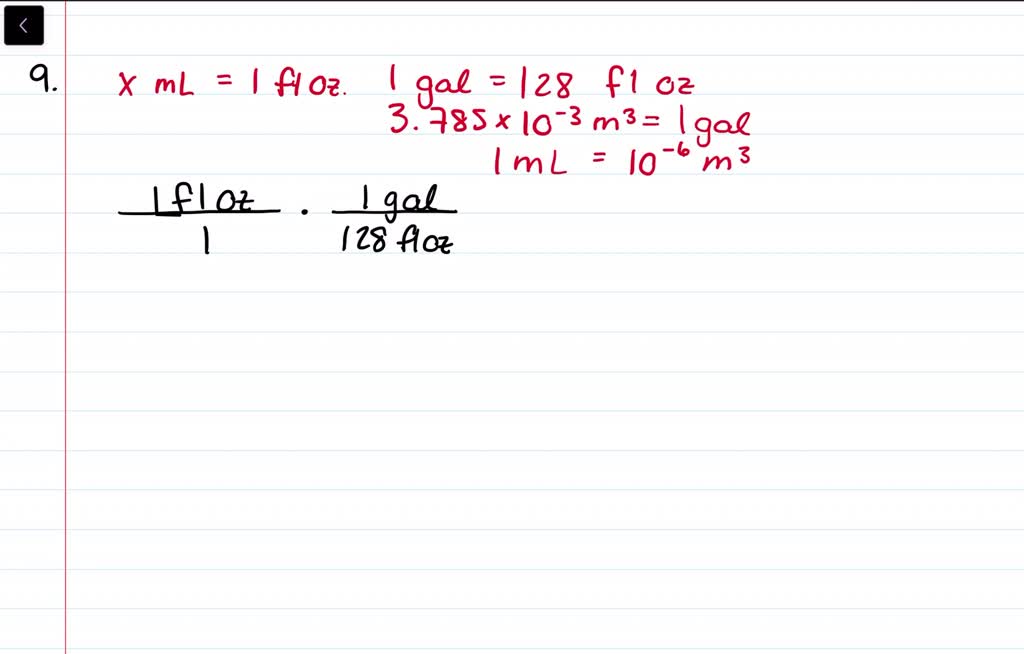 9. x mL = 1 fl oz. 1 gal = 128 fl oz
3.785 × 10⁻³ m³ = 1 gal
1 mL = 10⁻⁶ m³
1 fl oz / 1 · 1 gal / 128 fl oz